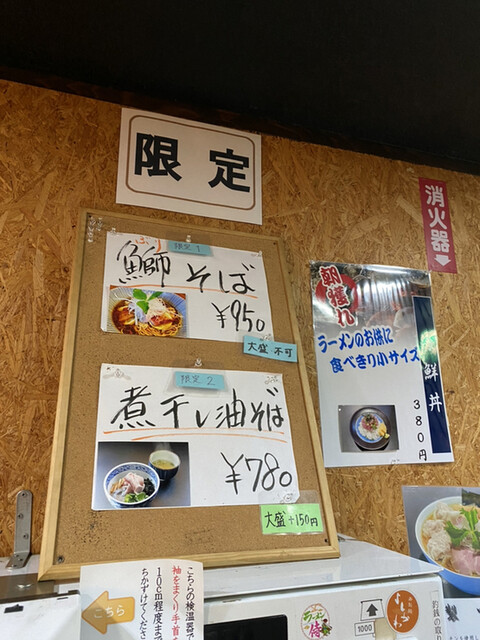 限定
限定1
ぶり
鰤そば
¥950
大盛 不可
限定2
煮干し油そば
¥780
大盛+150円
消火器
朝獲れ
ラーメンのお供に
食べきり小サイズ
鮮丼
380円
こちらの検温器で
袖をまくり手首を
10cm程度まで
ちかずけてくださ
こちら
ラーメン
侍
1000